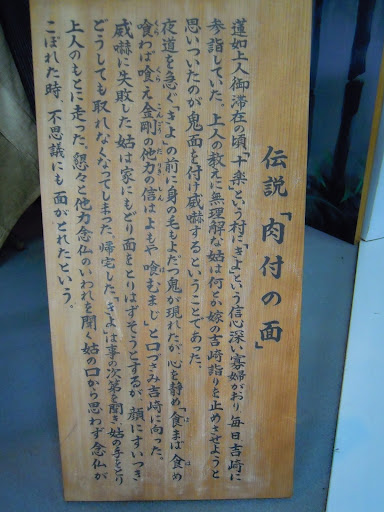 伝説「肉付の面」
蓮如上人御滞在の頃、十楽という村に「きよ」という信心深い寡婦がおり、毎日吉崎に
参詣していた。上人の教えに無理解な姑は何とか嫁の吉崎詣りを止めさせようと
思いついたのが鬼面を付け威嚇するということであった。
夜道を急ぐ「きよ」の前に身の毛もよだつ鬼が現れたが、心を静め「食まば食め
喰わば喰え金剛の他力の信はよもや喰むまじ」と口づさみ吉崎に向った。
威嚇に失敗した姑は家にもどり面をとりはずそうとするが、顔にすいつき
どうしても取れなくなってしまった。帰宅した「きよ」は事の次第を聞き、姑の手をとり
上人のもとに走った。懇々と他力念仏のいわれを聞く姑の口から思わず念仏が
こぼれた時、不思議にも面がとれたという。